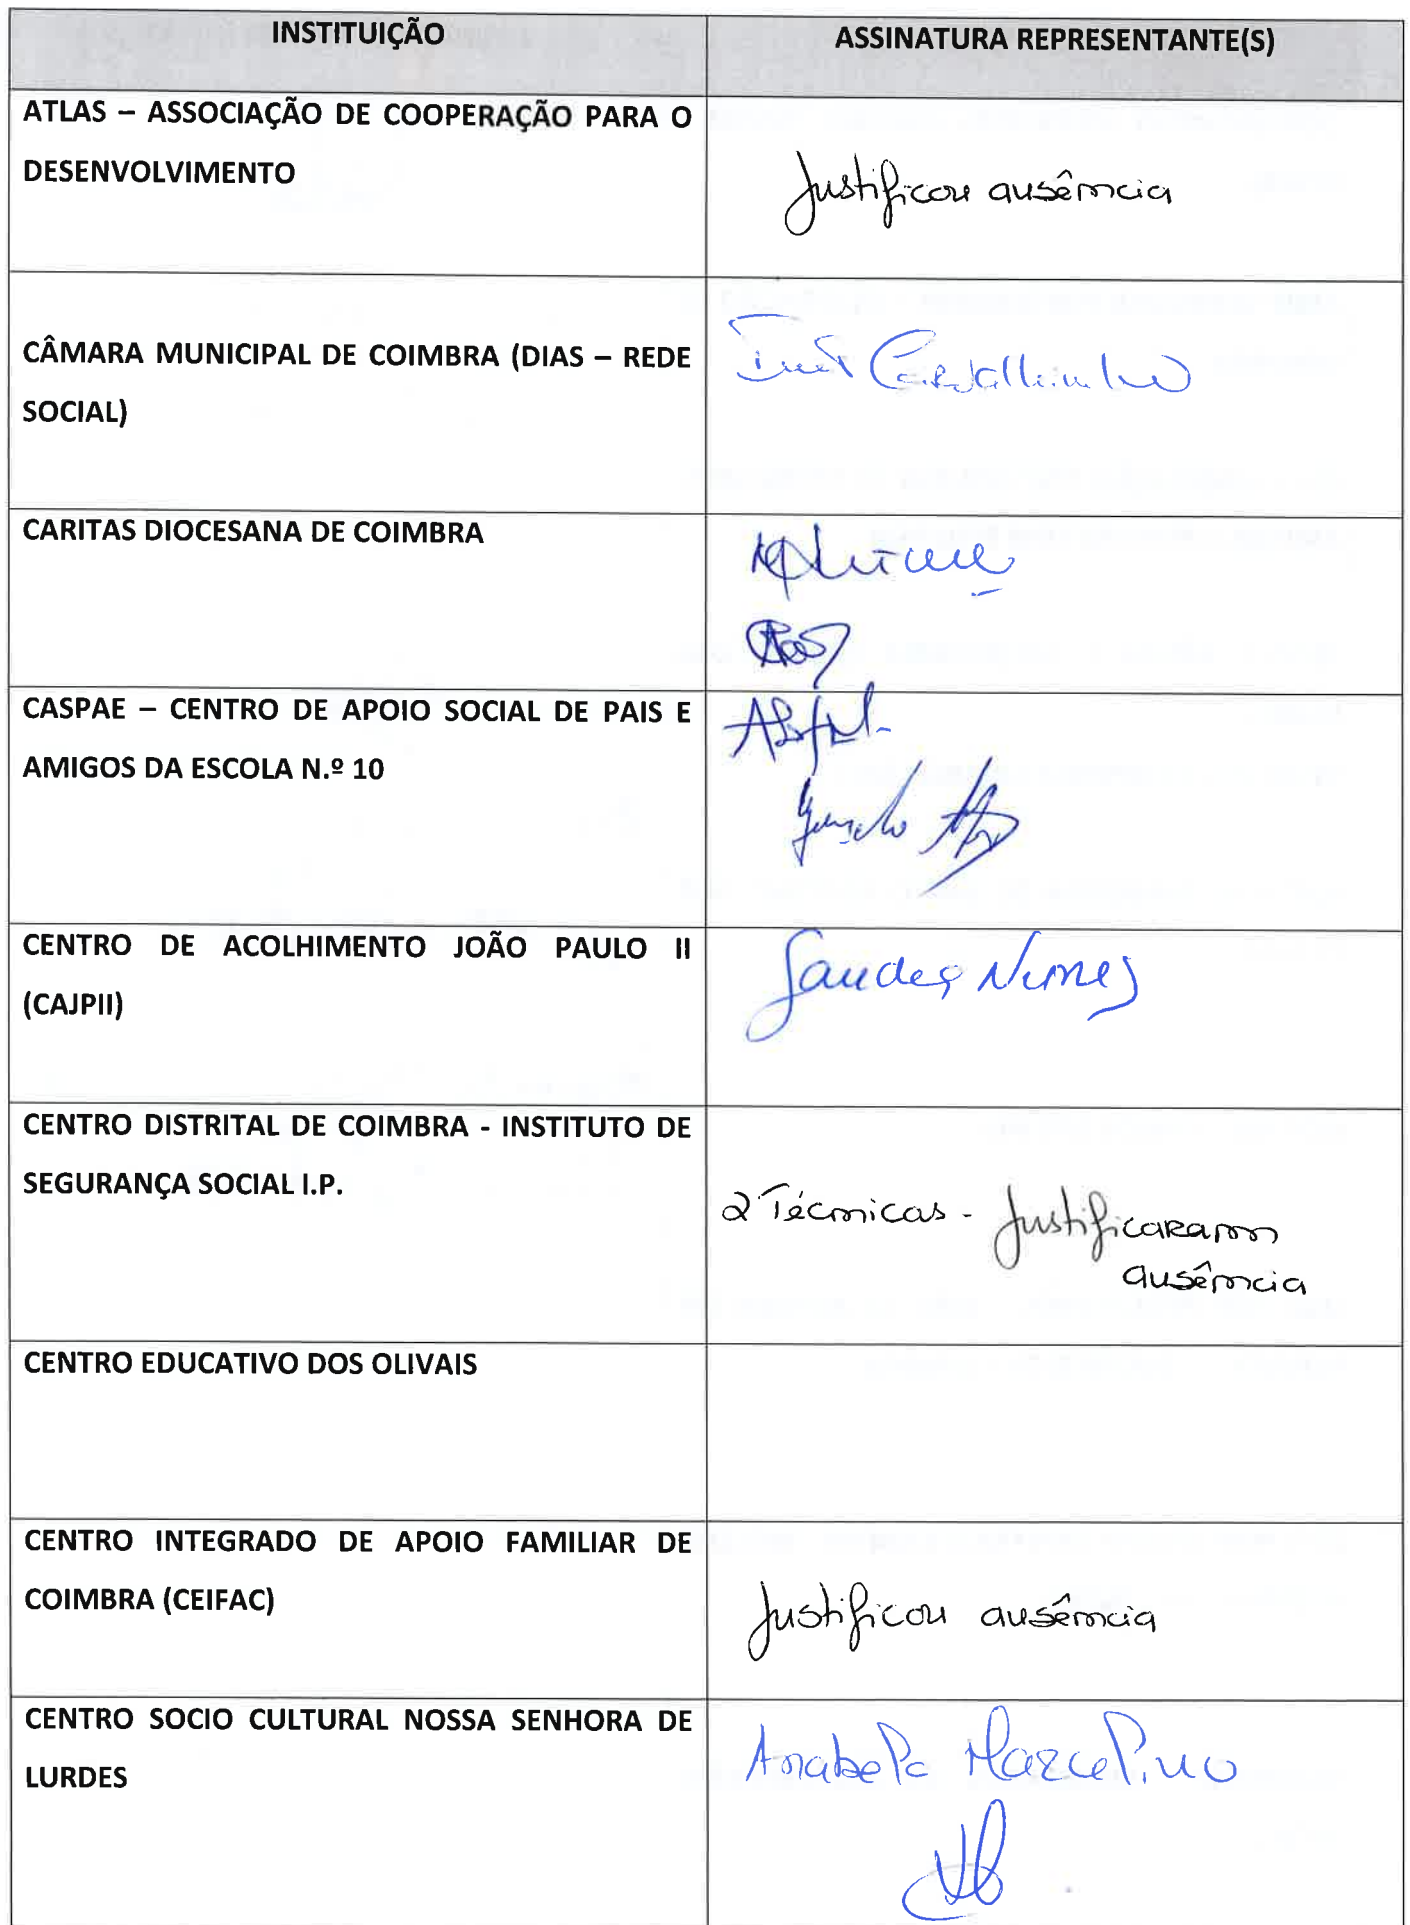 INSTITUIÇÃO
ASSINATURA REPRESENTANTE(S)
ATLAS – ASSOCIAÇÃO DE COOPERAÇÃO PARA O
DESENVOLVIMENTO
Justificou ausência
CÂMARA MUNICIPAL DE COIMBRA (DIAS – REDE
SOCIAL)
CARITAS DIOCESANA DE COIMBRA
CASPAE – CENTRO DE APOIO SOCIAL DE PAIS E
AMIGOS DA ESCOLA N.º 10
CENTRO DE ACOLHIMENTO JOÃO PAULO II
(CAJPII)
Nunes
CENTRO DISTRITAL DE COIMBRA - INSTITUTO DE
SEGURANÇA SOCIAL I.P.
2 Técnicas - Justificaram
ausência
CENTRO EDUCATIVO DOS OLIVAIS
CENTRO INTEGRADO DE APOIO FAMILIAR DE
COIMBRA (CEIFAC)
Justificou ausência
CENTRO SOCIO CULTURAL NOSSA SENHORA DE
LURDES
Anabela Marcelino